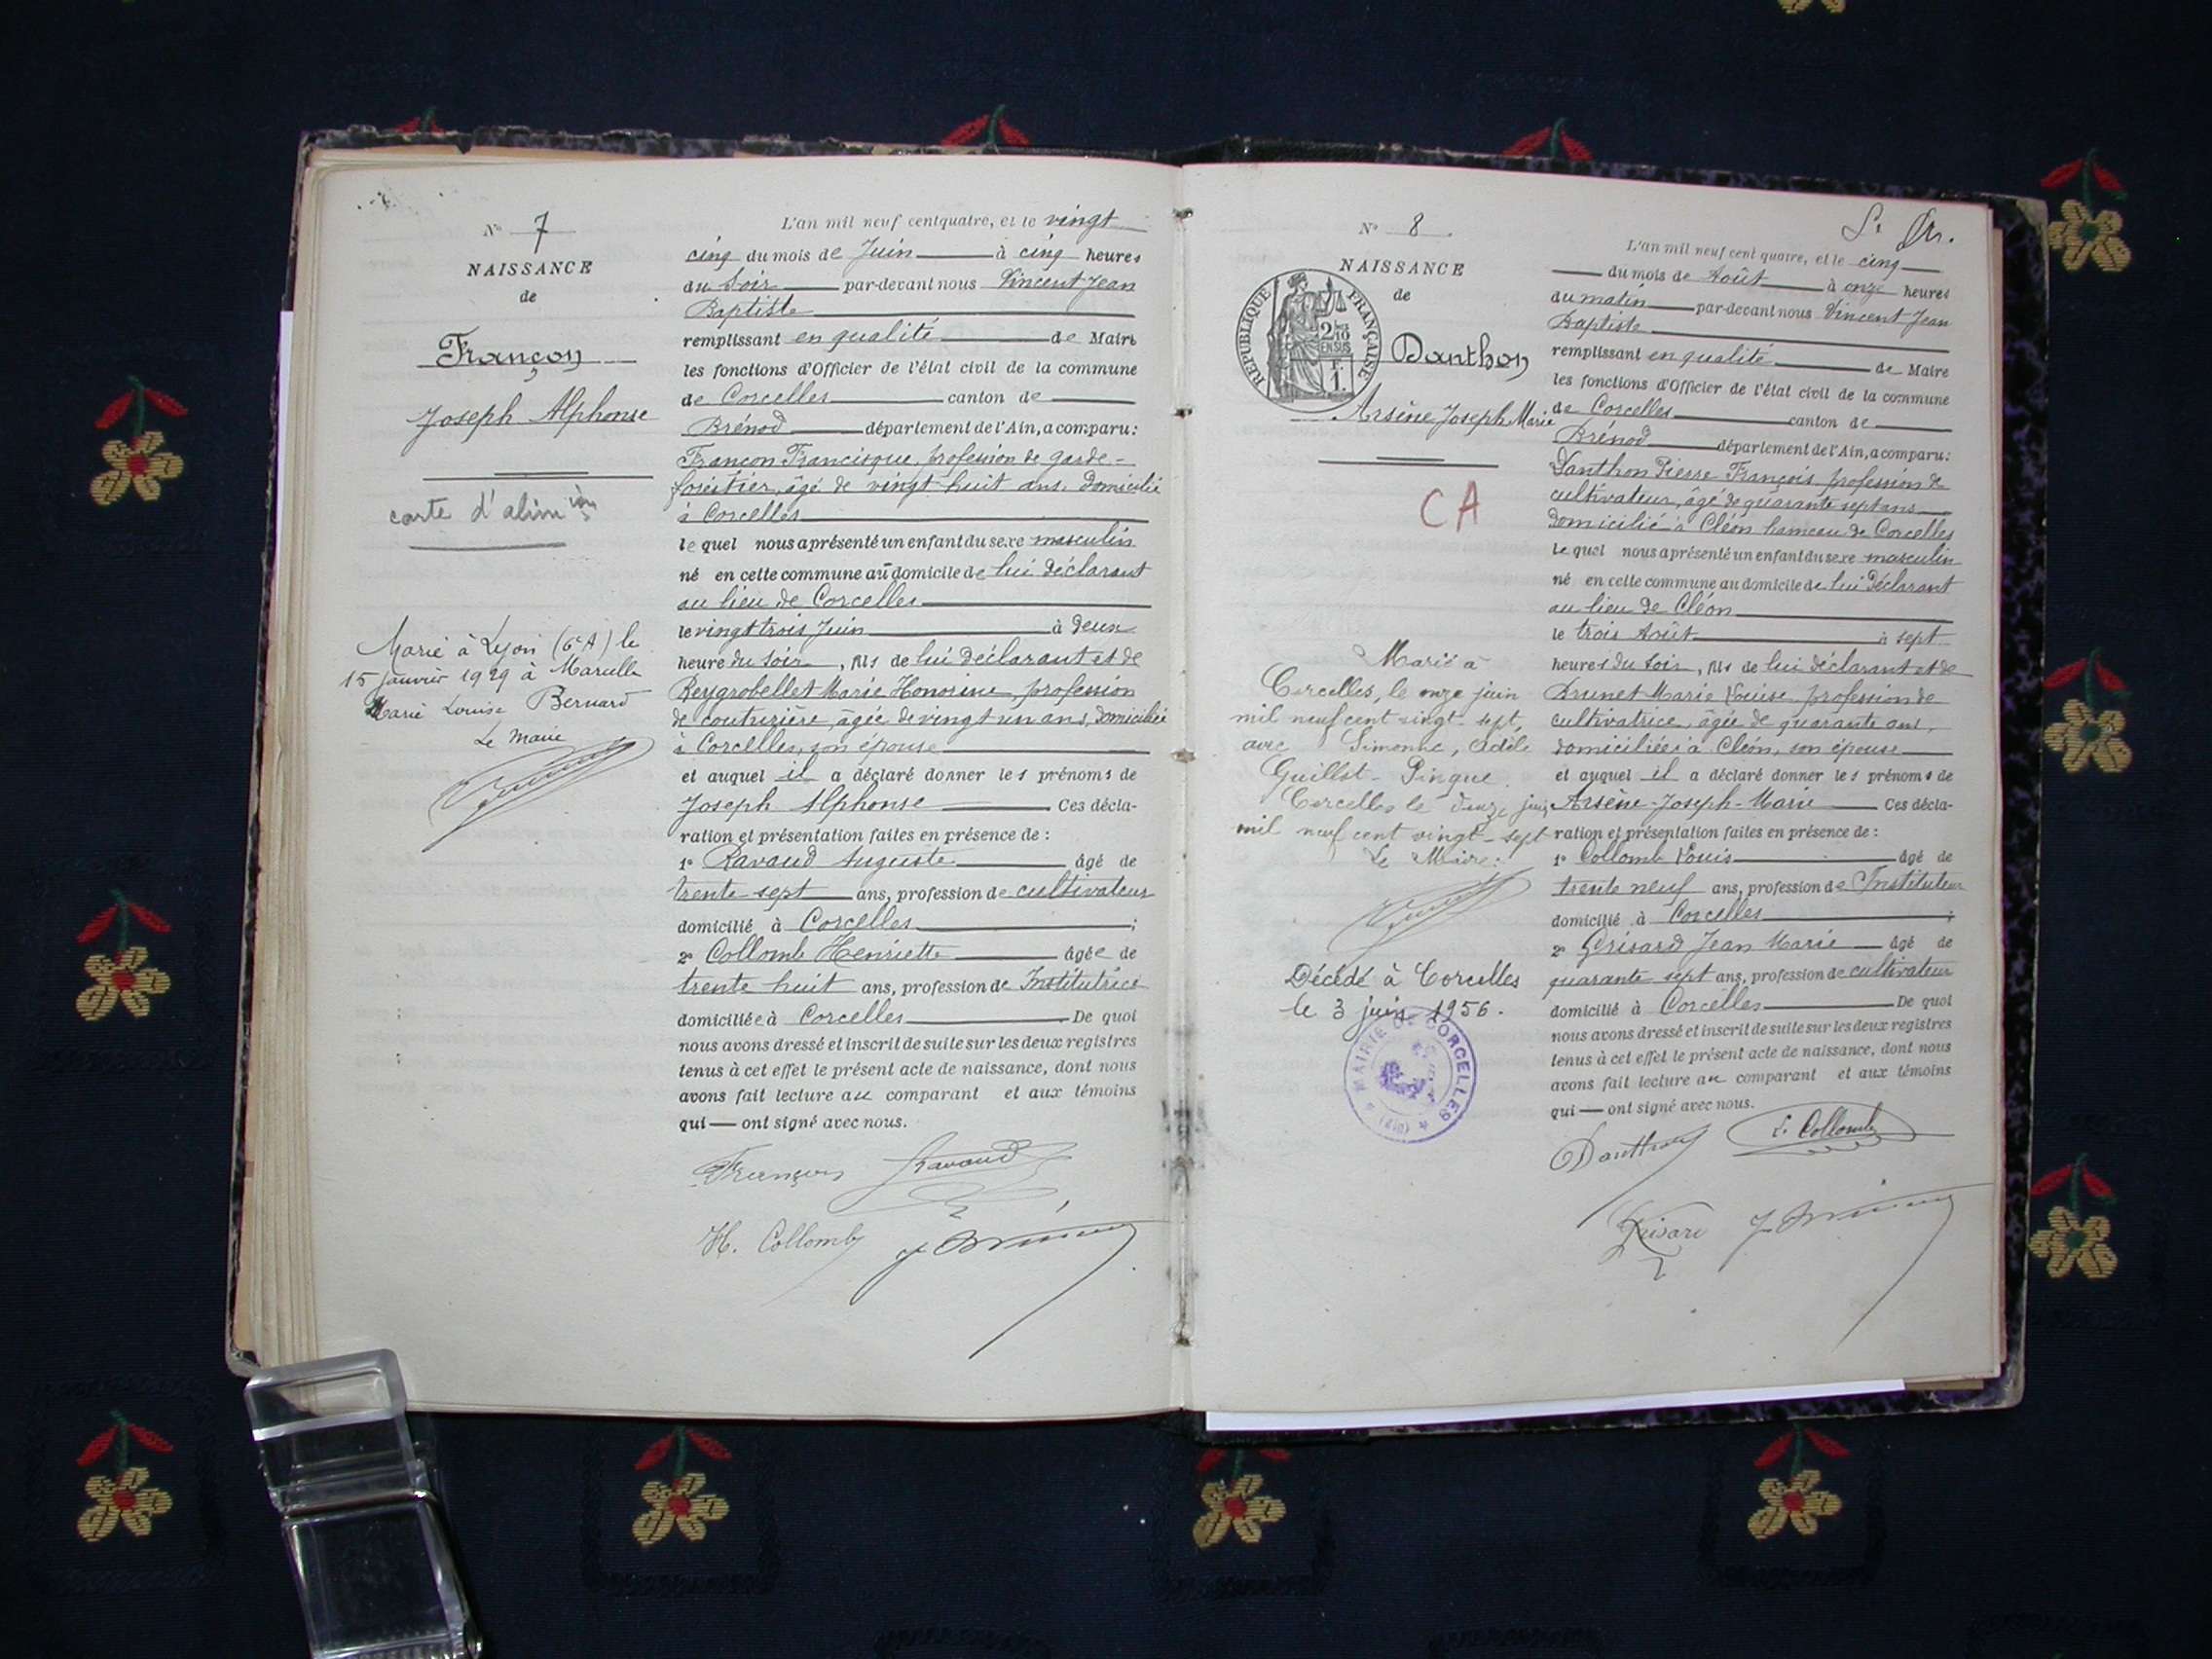 N° 7
NAISSANCE
de
Françon
Joseph Alphonse
carte d'alim
Marié à Lyon (6e A) le
15 janvier 1929 à Marcelle
Marie Louise Bernard
Le Maire
L'an mil neuf cent quatre, et le vingt
cinq du mois de Juin à cinq heures
du soir par-devant nous Vincent Jean
Baptiste
remplissant en qualité de Maire
les fonctions d'Officier de l'état civil de la commune
de Corcelles canton de
Brénod département de l'Ain, a comparu:
Françon Francisque, profession de garde-
forestier, âgé de vingt-huit ans, domicilié
à Corcelles
le quel nous a présenté un enfant du sexe masculin
né en cette commune au domicile de lui déclarant
au lieu de Corcelles
le vingt trois Juin à deux
heure du soir, fils de lui déclarant et de
Reygrobellet Marie Honorine, profession
de couturière, âgée de vingt un ans, domiciliée
à Corcelles, son épouse
et auquel il a déclaré donner les prénoms de
Joseph Alphonse Ces décla-
ration et présentation faites en présence de :
1° Ravaud Auguste âgé de
trente sept ans, profession de cultivateur
domicilié à Corcelles ;
2° Collomb Henriette âgée de
trente huit ans, profession de Institutrice
domiciliée à Corcelles De quoi
nous avons dressé et inscrit de suite sur les deux registres
tenus à cet effet le présent acte de naissance, dont nous
avons fait lecture au comparant et aux témoins
qui — ont signé avec nous.
Françon Ravaud
H. Collomb
N° 8
NAISSANCE
de
REPUBLIQUE FRANÇAISE
Danthon
Arsène Joseph Marie
CA
Marié à
Corcelles, le onze juin
mil neuf cent vingt-sept,
avec Simonne, Adèle
Guillot-Pingue.
Corcelles le douze juin
mil neuf cent vingt-sept
Le Maire :
Décédé à Corcelles
le 3 juin 1956.
MAIRIE DE CORCELLES
L'an mil neuf cent quatre, et le cinq
du mois de Août à onze heures
du matin par-devant nous Vincent Jean
Baptiste
remplissant en qualité de Maire
les fonctions d'Officier de l'état civil de la commune
de Corcelles canton de
Brénod département de l'Ain, a comparu:
Danthon Pierre François profession de
cultivateur, âgé de quarante sept ans
domicilié à Cléon hameau de Corcelles
le quel nous a présenté un enfant du sexe masculin
né en cette commune au domicile de lui déclarant
au lieu de Cléon
le trois Août à sept
heures du soir, fils de lui déclarant et de
Brunet Marie Louise profession de
cultivatrice, âgée de quarante ans,
domiciliée à Cléon, son épouse
et auquel il a déclaré donner les prénoms de
Arsène-Joseph-Marie Ces décla-
ration et présentation faites en présence de :
1° Collomb Louis âgé de
trente neuf ans, profession de Instituteur
domicilié à Corcelles ;
2° Grisard Jean Marie âgé de
quarante sept ans, profession de cultivateur
domicilié à Corcelles De quoi
nous avons dressé et inscrit de suite sur les deux registres
tenus à cet effet le présent acte de naissance, dont nous
avons fait lecture au comparant et aux témoins
qui — ont signé avec nous.
Danthon L. Collomb
Grisard